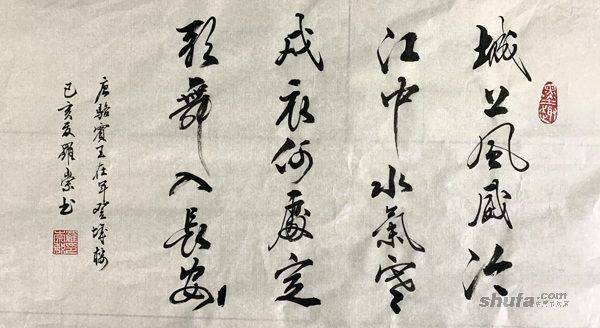 城上風威冷
江中水氣寒
戎衣何處定
歌舞入長安
唐駱賓王在軍登城樓
己亥夏羅崇书
shufa.com